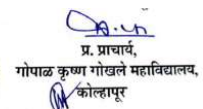 प्र. प्राचार्य,
गोपाळ कृष्ण गोखले महाविद्यालय,
कोल्हापूर